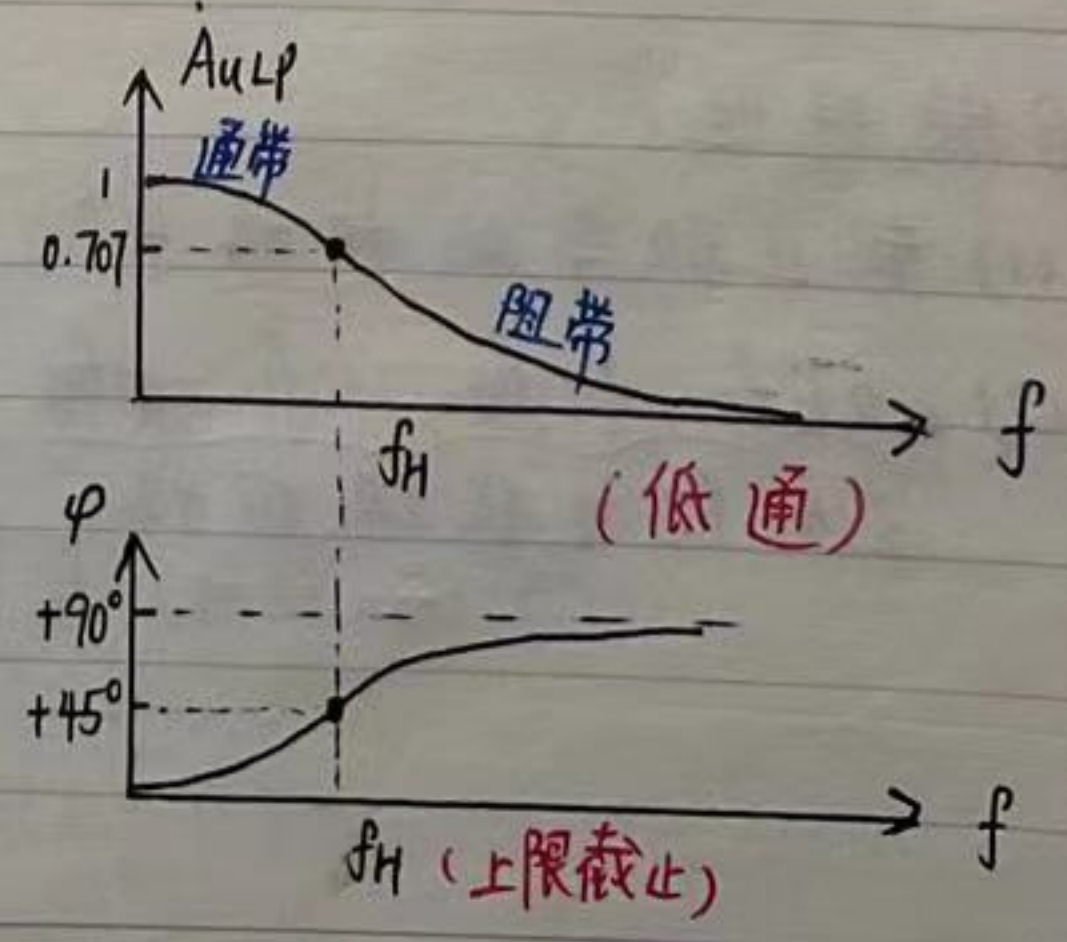 AuLP
通带
1
0.707
阻带
fH
f
(低通)
φ
+90°
+45°
f
fH (上限截止)